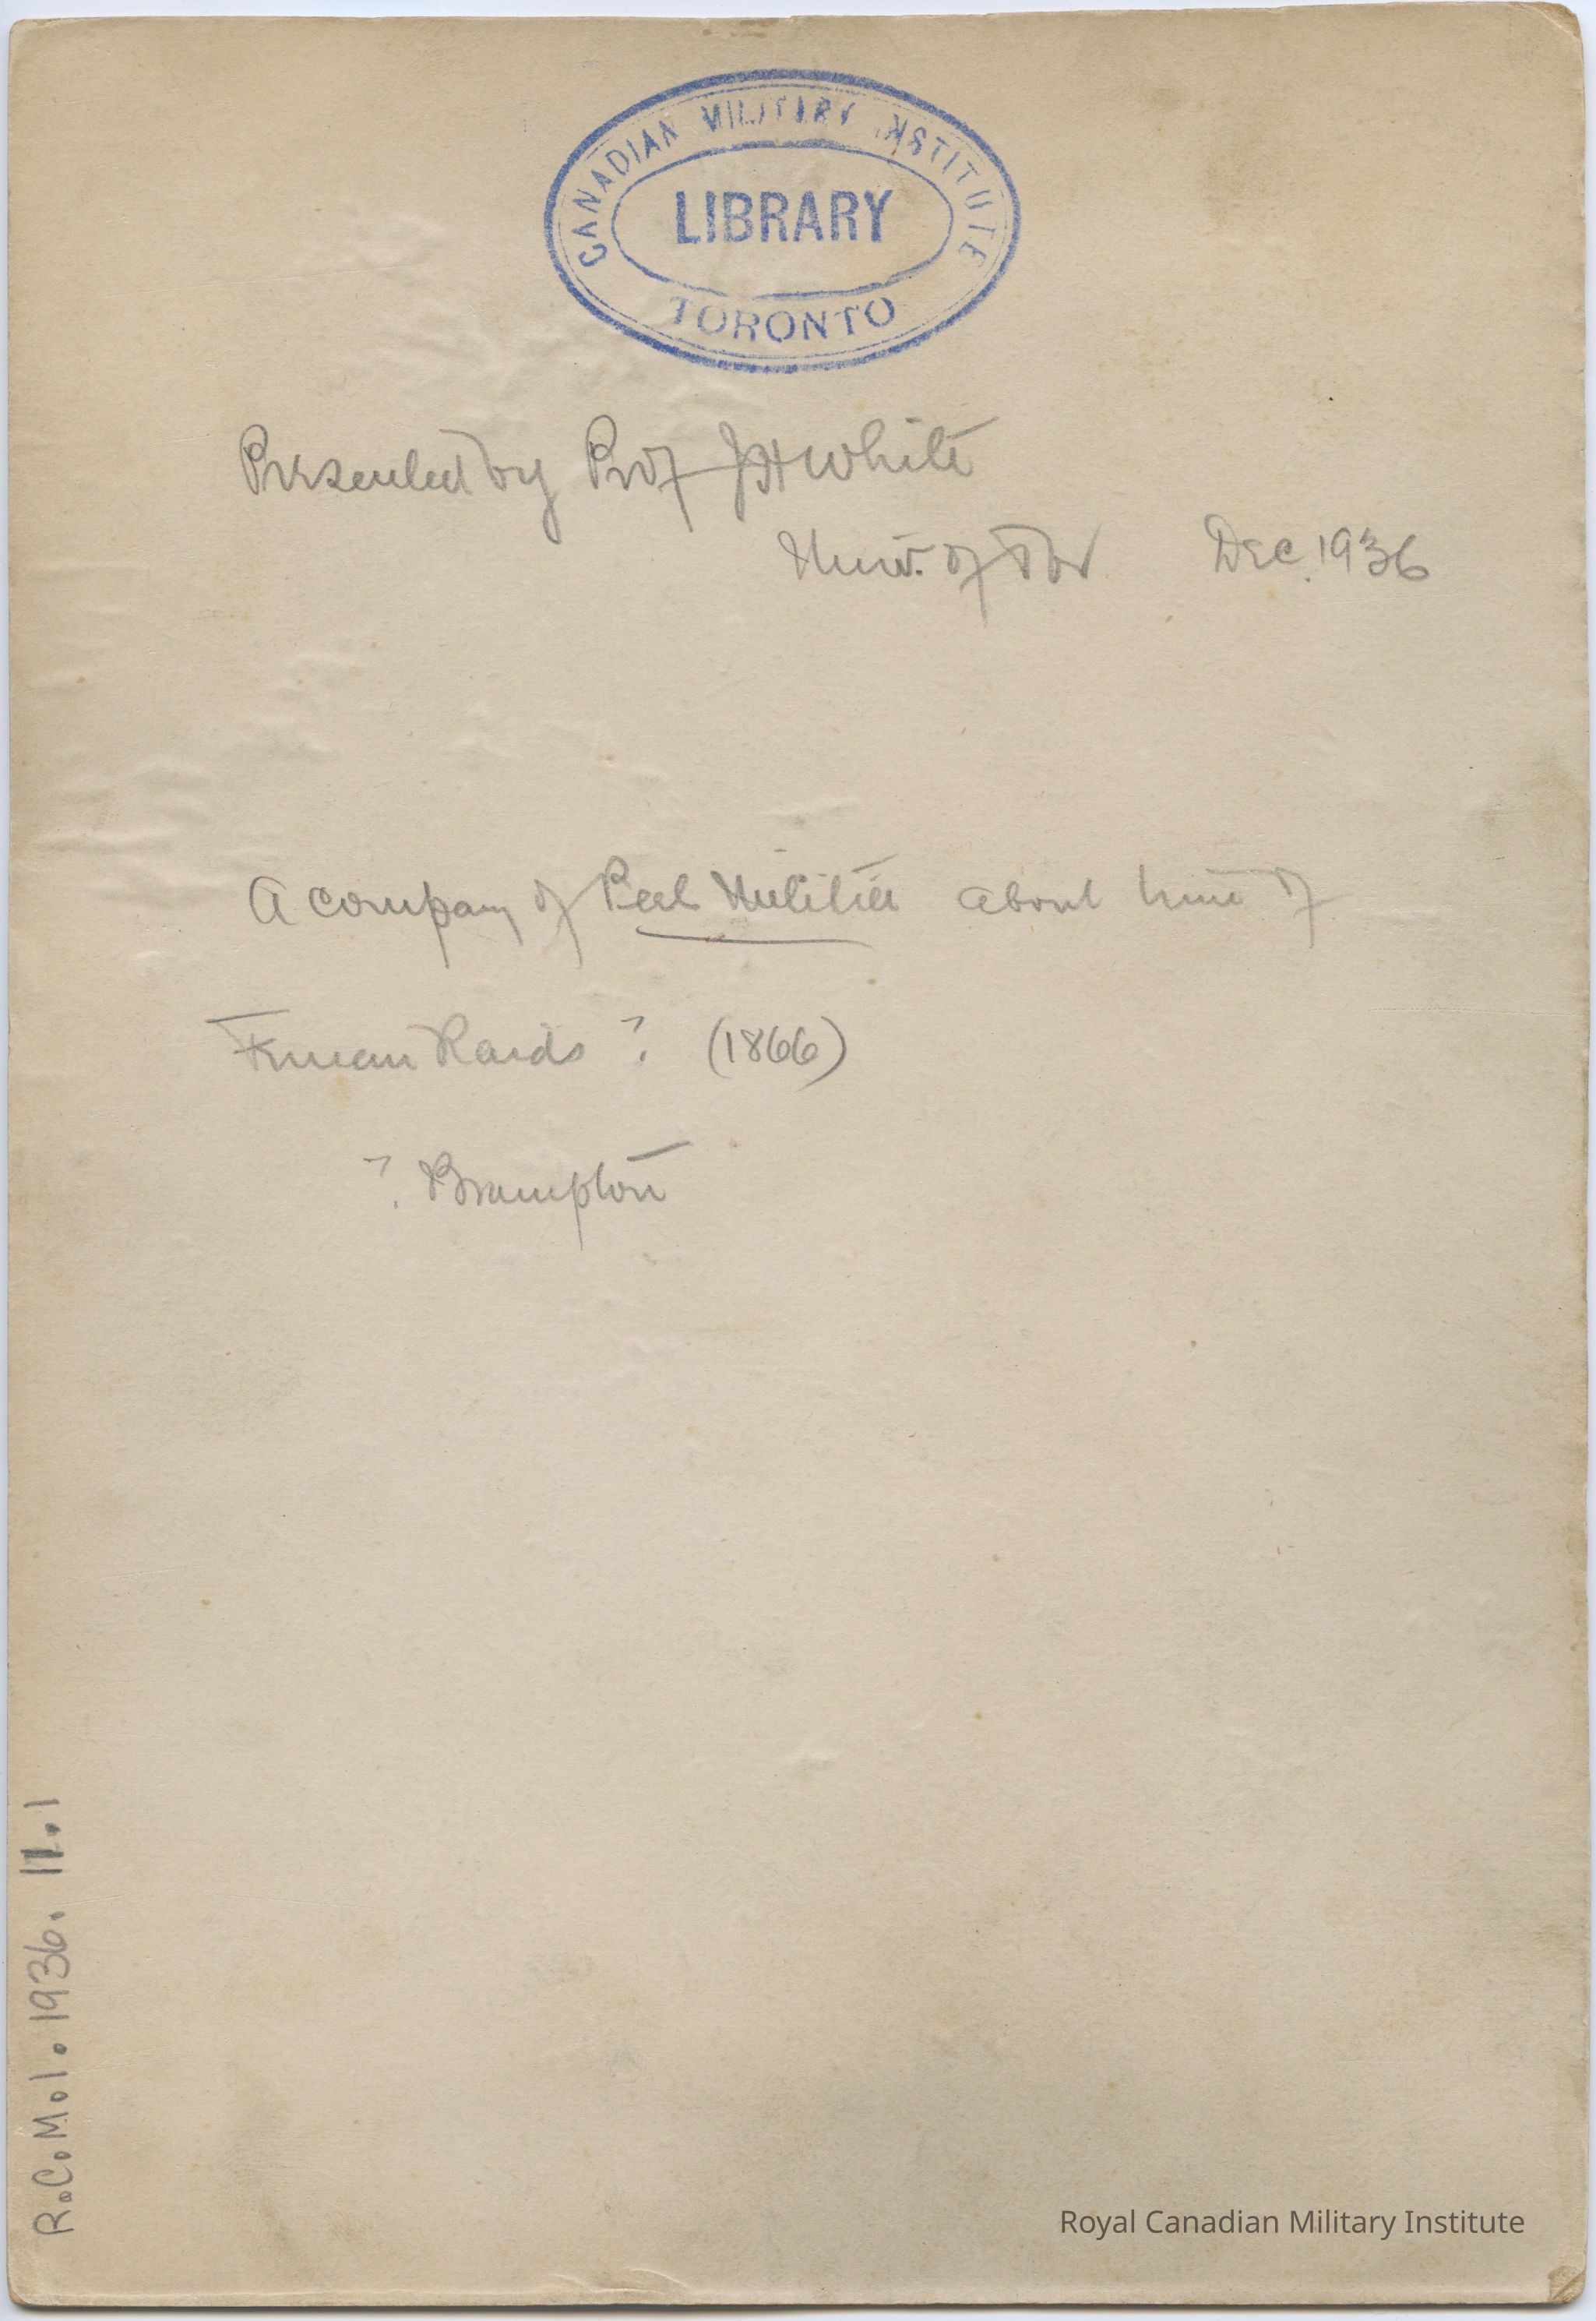 CANADIAN MILITARY INSTITUTE
LIBRARY
TORONTO
Presented by Prof J H White
Univ. of Tor Dec. 1936
A company of Peel Militia about time of
Fenian Raids ? (1866)
? Brampton
R.C.M.I. 1936. 11.1
Royal Canadian Military Institute